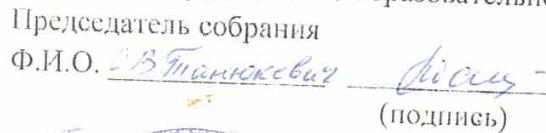 Председатель собрания
Ф.И.О. С В Танюкевич
(подпись)